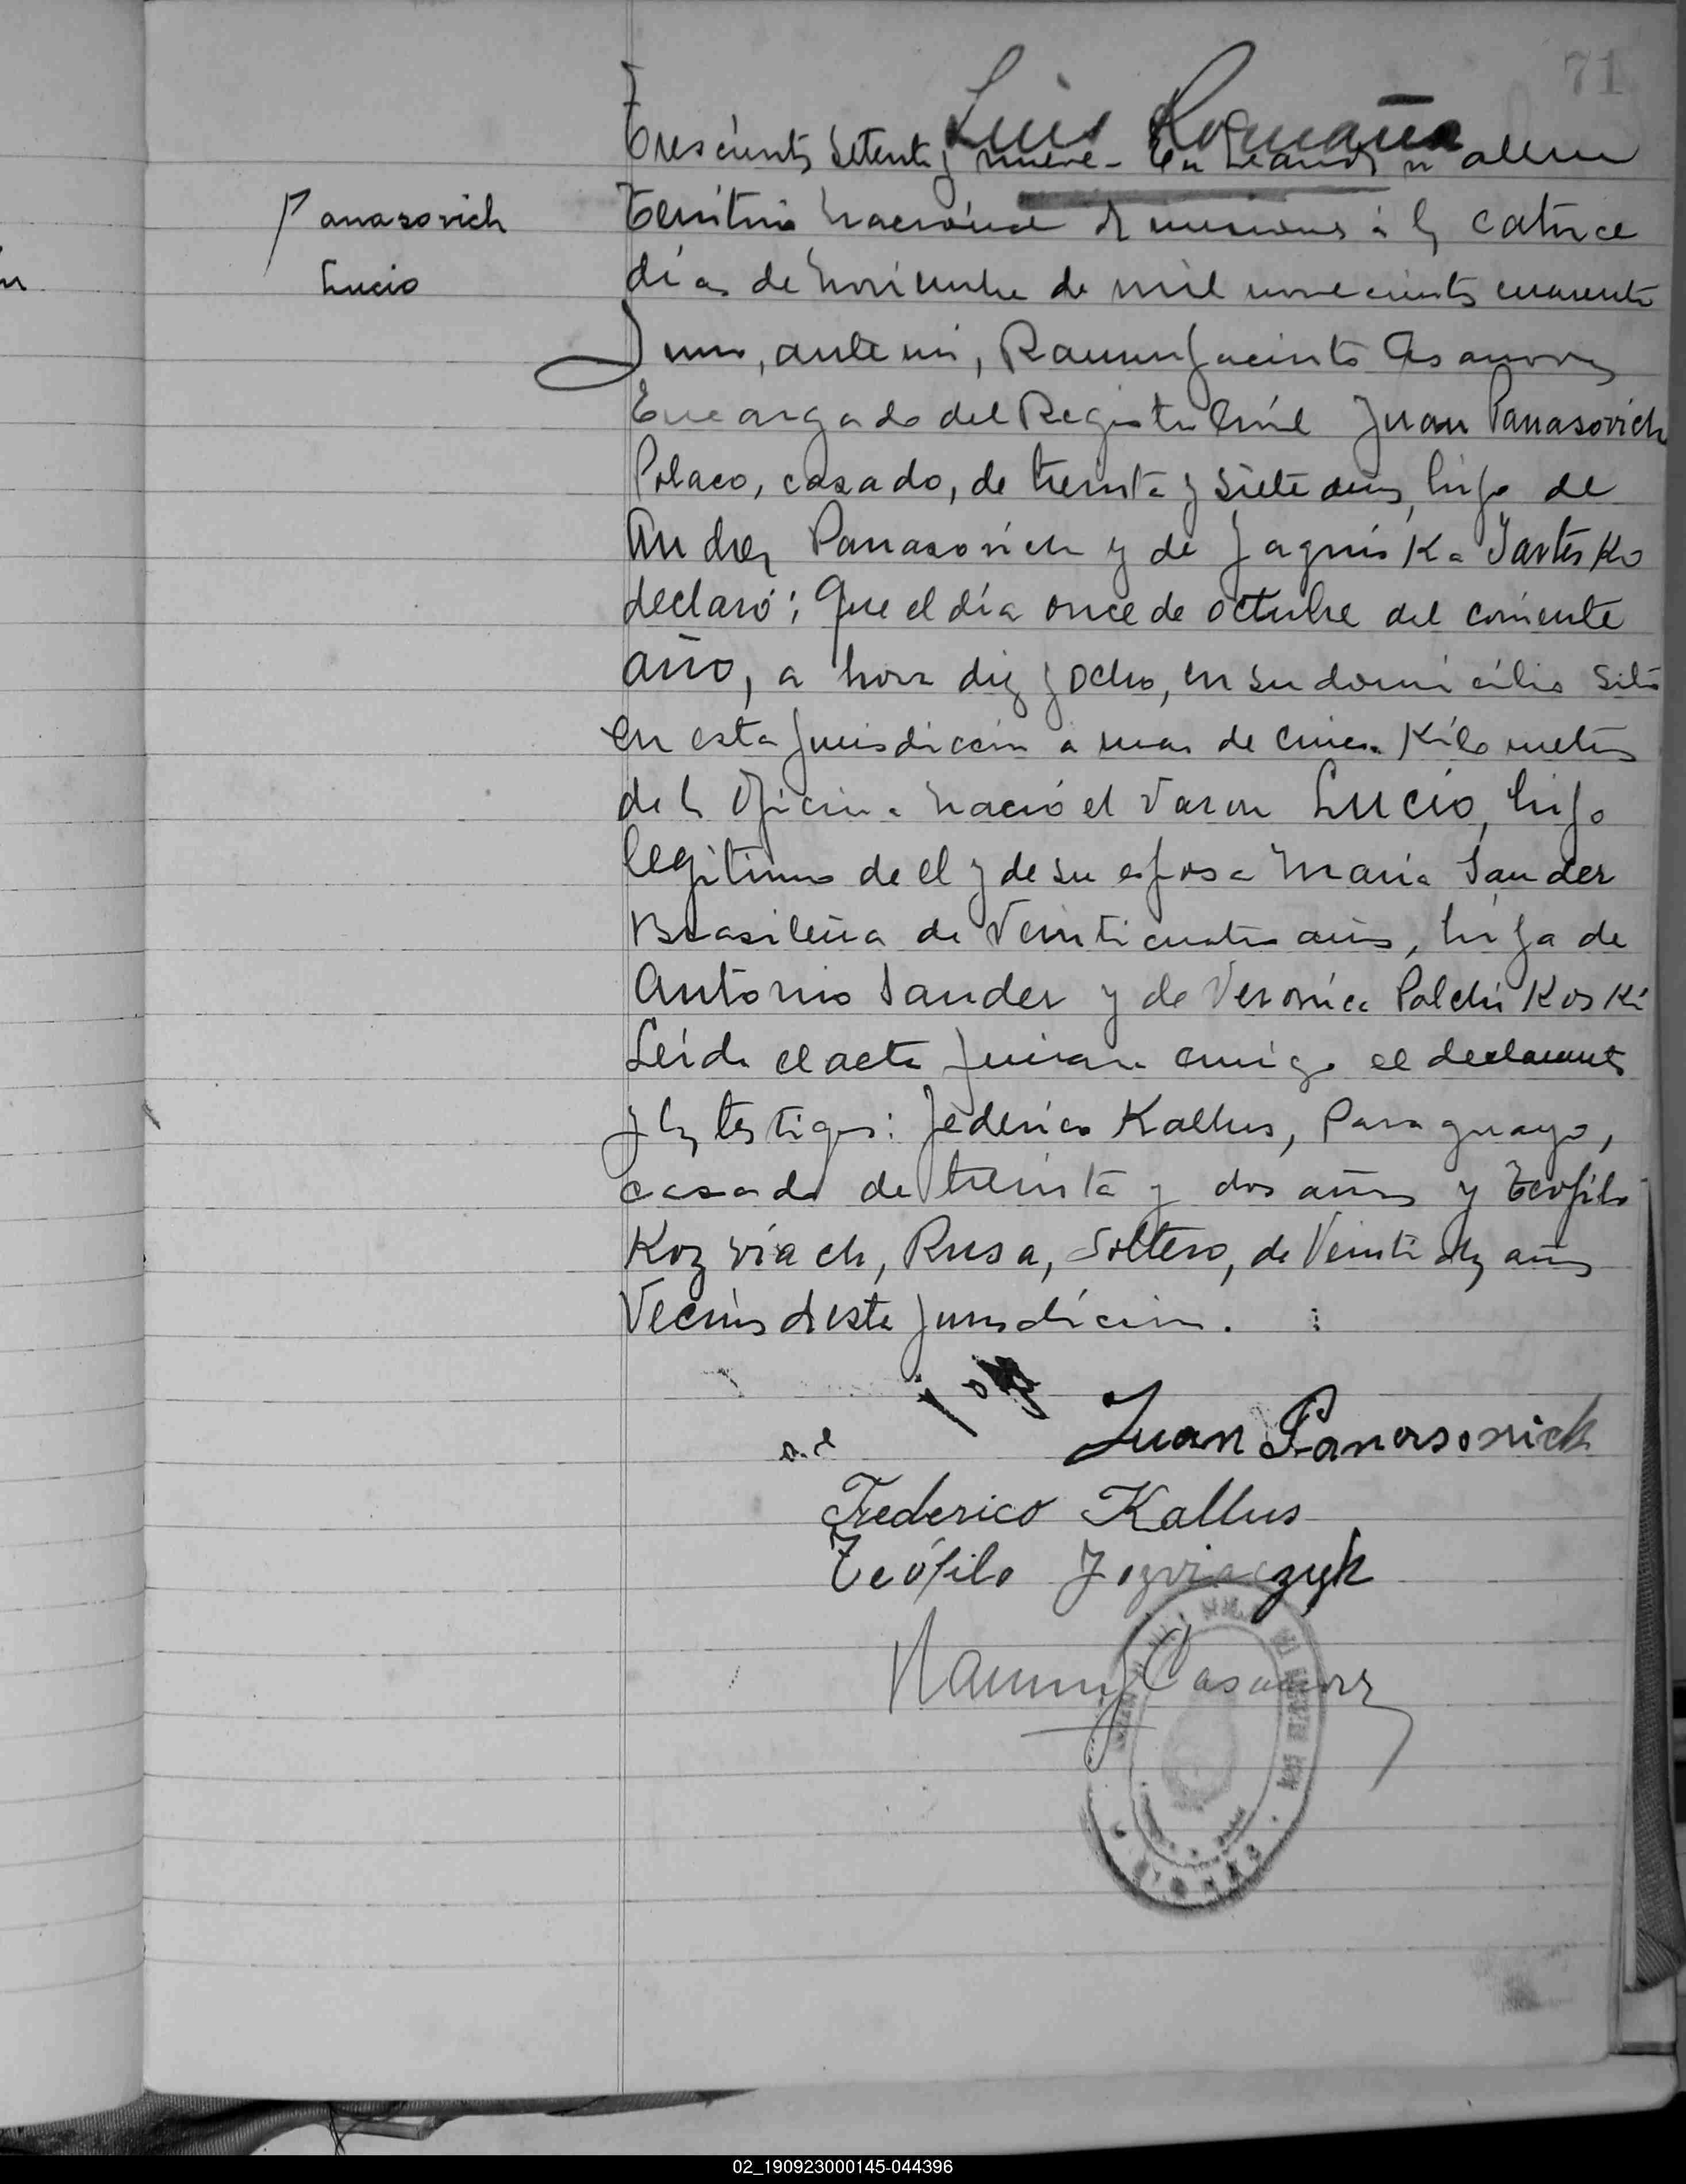 71
Luis Romaña
Trescientos setenta y nueve - En Leandro N Alem
Panasovich
Lucio
Territorio Nacional de Misiones á los catorce
días de Noviembre de mil novecientos cuarenta
y uno, ante mi, Ramon Jacinto Casanova
Encargado del Registro Civil Juan Panasovich
Polaco, casado, de treinta y siete años, hijo de
Andres Panasovich y de Jagnis Ka
declaró: Que el día once de octubre del corriente
año, a hora diez y ocho, en su domicilio sito
en esta jurisdiccion a mas de cinco Kilometros
de la Oficina nació el varon Lucio, hijo
legitimo de el y de su esposa María Sander
Brasileña de veinticuatro años, hija de
Antonio Sander y de Veronica
Leida el acta firman conmigo el declarante
y los testigos: Federico Kallus, Paraguayo,
casado de treinta y dos años y Teofilo
Kozviach, Rusa, Soltero, de Veinti años
Vecinos de esta jurisdicion.
Juan Panasovich
Federico Kallus
Teófilo Jozviaczyk
Ramon J Casanova
MISIONES
02_190923000145-044396